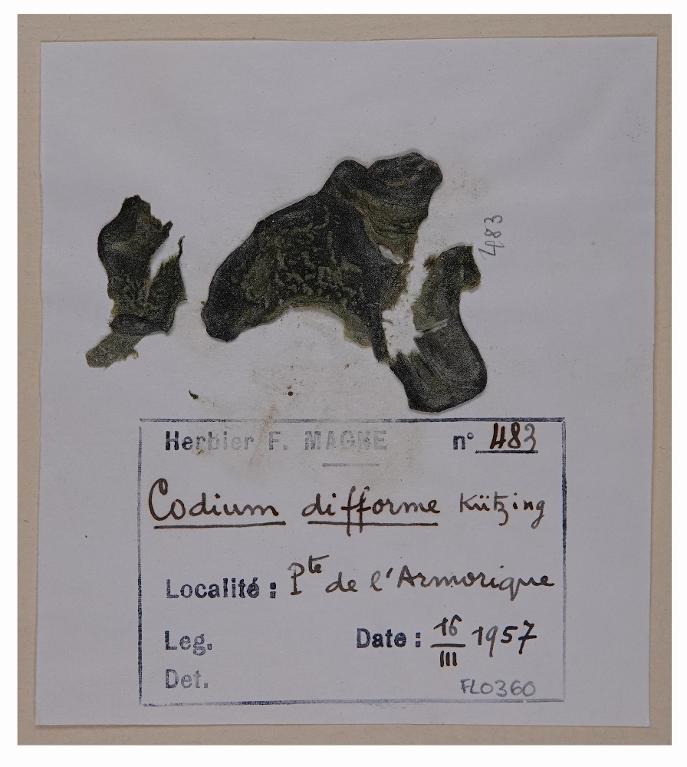 483
Herbier F. MAGNE n° 483
Codium difforme Kützing
Localité : Pte de l'Armorique
Leg. Date : 16/III 1957
Det. FLO360